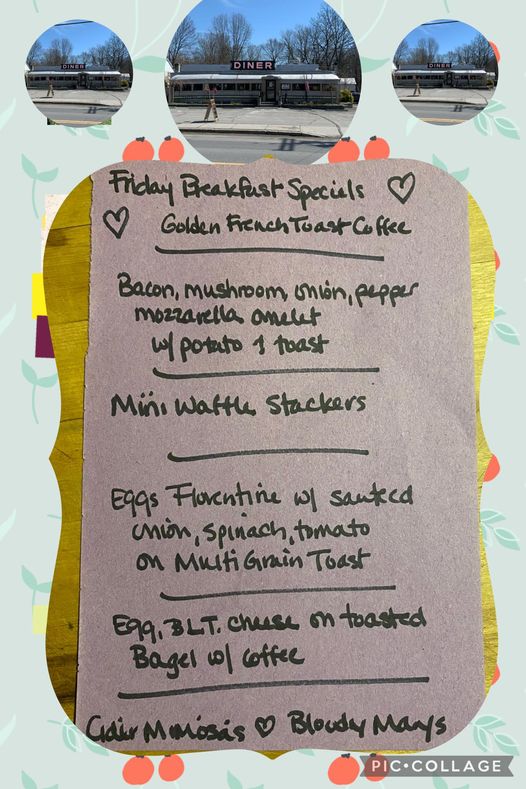 DINER
DINER
DINER
Friday Breakfast Specials
Golden French Toast Coffee
Bacon, mushroom, onion, pepper
mozzarella omelet
w/ potato & toast
Mini Waffle Stackers
Eggs Florentine w/ sauteed
onion, spinach, tomato
on Multi Grain Toast
Egg, B.L.T. cheese on toasted
Bagel w/ coffee
Cider Mimosas Bloody Marys
PIC•COLLAGE